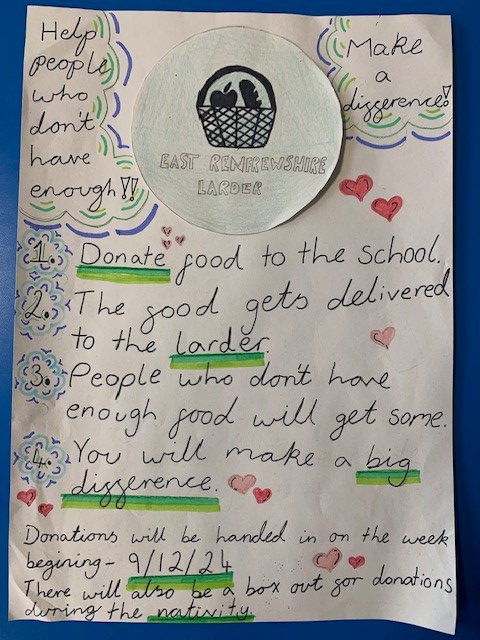 Help
people
who
don't
have
enough!!
Make
a
difference!
EAST RENFREWSHIRE
LARDER
1. Donate food to the school.
2. The food gets delivered
to the larder.
3. People who don't have
enough food will get some.
4. You will make a big
difference.
Donations will be handed in on the week
begining- 9/12/24
There will also be a box out for donations
during the nativity.